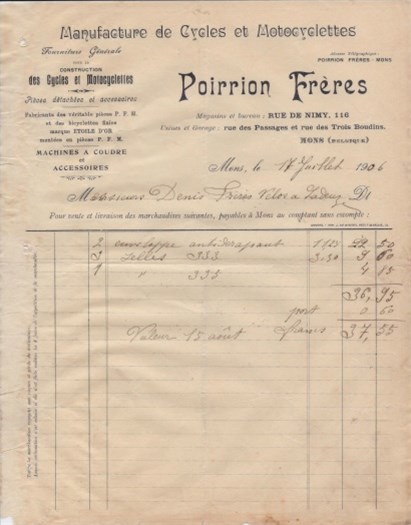 Manufacture de Cycles et Motocyclettes
Fourniture Générale
CONSTRUCTION
des Cycles et Motocyclettes
Pièces détachées et accessoires
Fabricants des véritable pièces F. P. M.
et des bicyclettes fixées
marque ETOILE D'OR
montées en pièces F. P. M.
MACHINES A COUDRE
ET
ACCESSOIRES
Adresse télégraphique :
POIRRION FRÈRES - MONS
Poirrion Frères
Magasins et bureau : RUE DE NIMY, 116
Usines et Garage : rue des Passages et rue des Trois Boudins.
MONS (BELGIQUE)
Mons, le 17 Juillet 1906
Messieurs Denis Frères Dt
Pour vente et livraison des marchandises suivantes, payables à Mons au comptant sans escompte :
2 enveloppe antidérapant 50
3 selles 333 3.30 9 60
1 " 335 4 15
36,95
port 0 60
Valeur 15 août francs 37,55